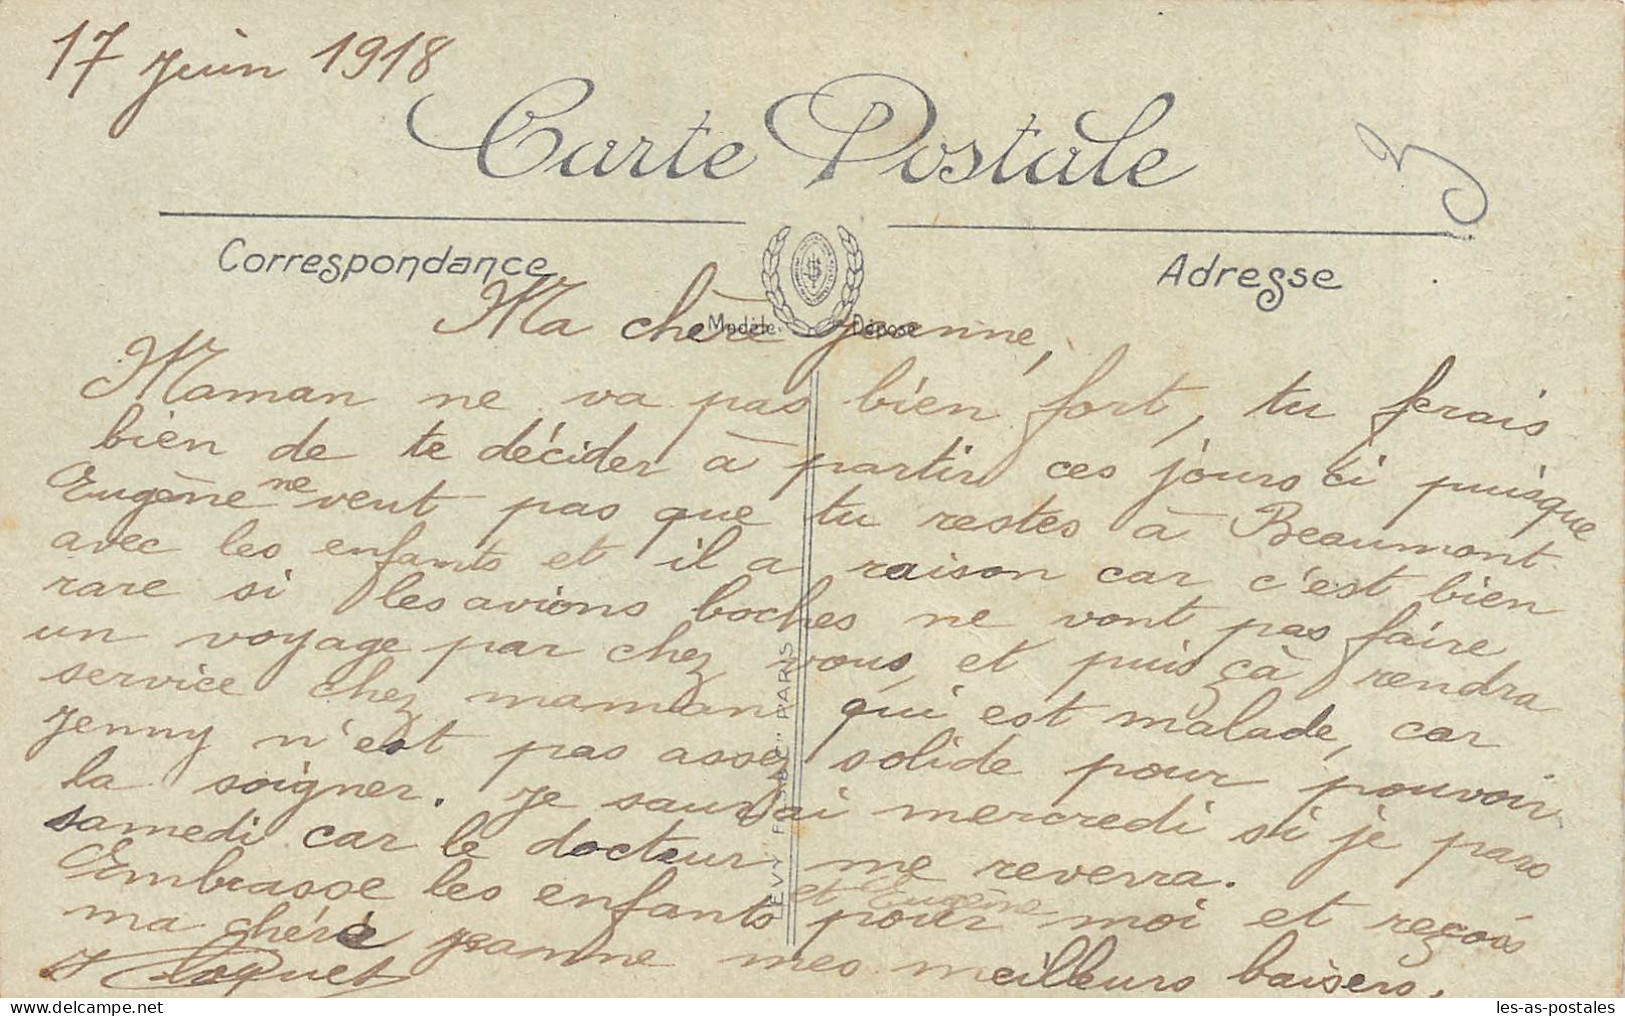 17 juin 1918
Carte Postale
Correspondance
Adresse
Modèle Déposé
Ma chère Jeanne,
Maman ne va pas bien fort, tu ferais
bien de te décider à partir ces jours ci puisque
Eugène ne veut pas que tu restes à Beaumont
avec les enfants et il a raison car c'est bien
rare si les avions boches ne vont pas faire
un voyage par chez vous, et puis çà rendra
service chez maman qui est malade, car
Jenny n'est pas assez solide pour pouvoir
la soigner. Je saurai mercredi si je pars
samedi car le docteur me reverra.
Embrasse les enfants et Eugène pour moi et reçois
ma chère Jeanne mes meilleurs baisers.
PARIS
les-as-postales